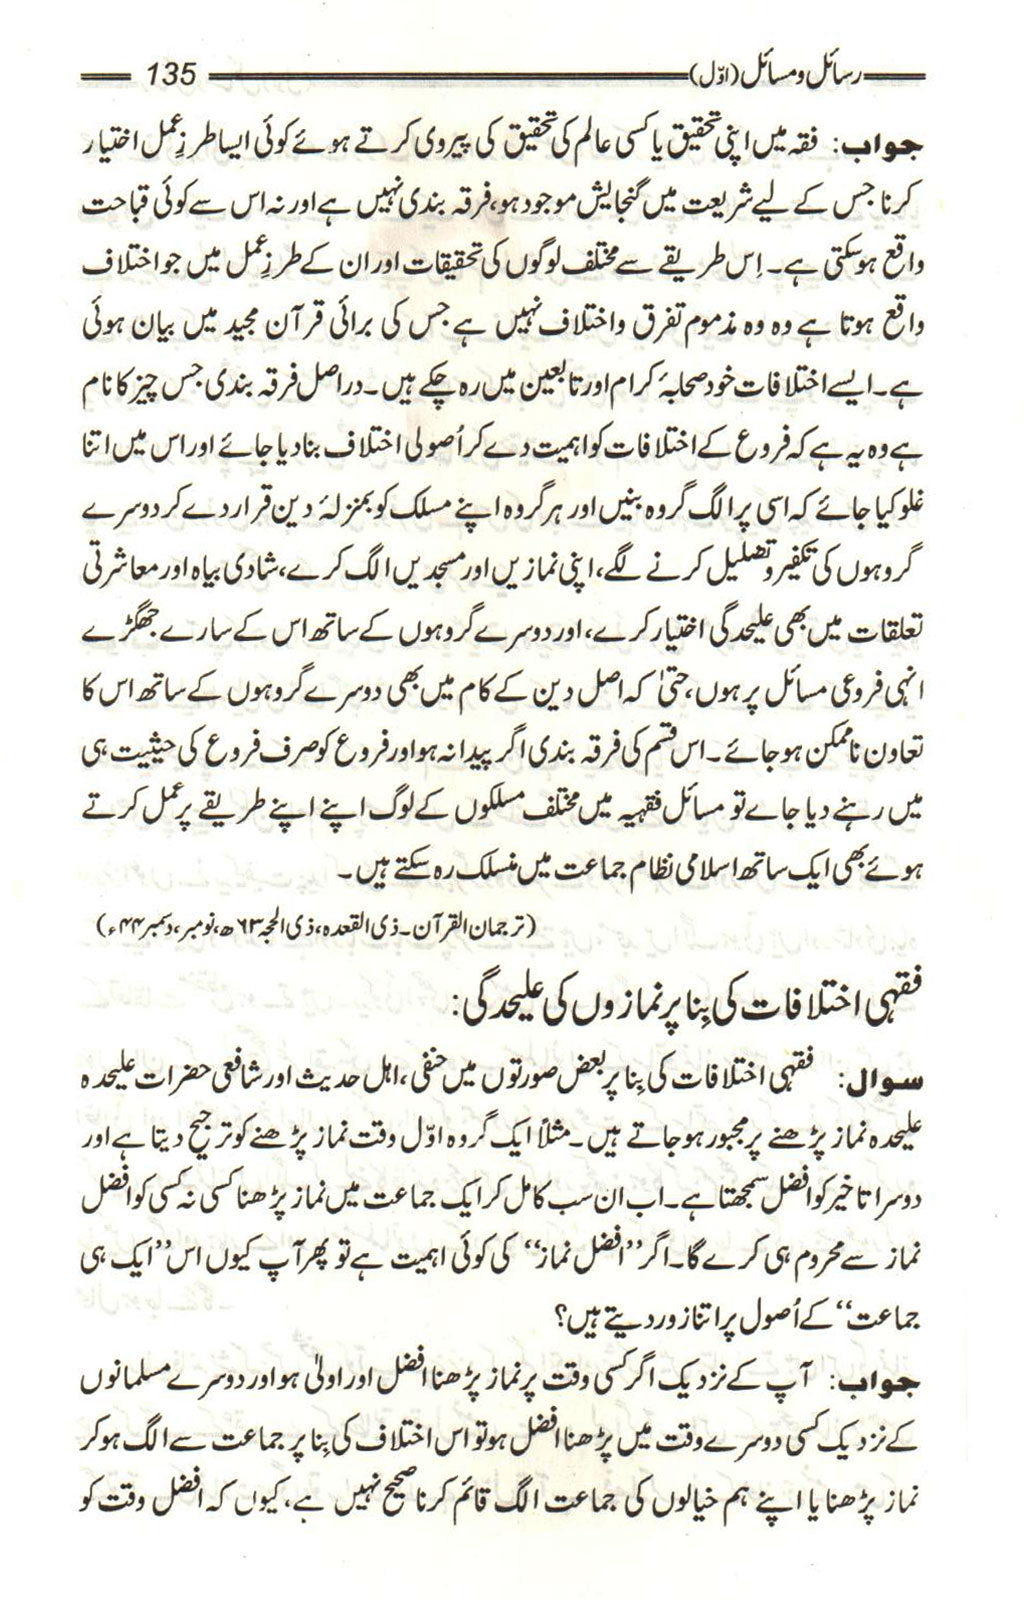 رسائل و مسائل (اوّل) 135
جواب: فقہ میں اپنی تحقیق یا کسی عالم کی تحقیق کی پیروی کرتے ہوئے کوئی ایسا طرزِ عمل اختیار
کرنا جس کے لیے شریعت میں گنجایش موجود ہو، فرقہ بندی نہیں ہے اور نہ اس سے کوئی قباحت
واقع ہوسکتی ہے۔ اِس طریقے سے مختلف لوگوں کی تحقیقات اور ان کے طرزِ عمل میں جو اختلاف
واقع ہوتا ہے وہ وہ مذموم تفرق واختلاف نہیں ہے جس کی برائی قرآن مجید میں بیان ہوئی
ہے۔ ایسے اختلافات خود صحابۂ کرام اور تابعین میں رہ چکے ہیں۔ دراصل فرقہ بندی جس چیز کا نام
ہے وہ یہ ہے کہ فروع کے اختلافات کو اہمیت دے کر اُصولی اختلاف بنا دیا جائے اور اس میں اتنا
غلو کیا جائے کہ اسی پر الگ گروہ بنیں اور ہر گروہ اپنے مسلک کو بمنزلۂ دین قرار دے کر دوسرے
گروہوں کی تکفیر و تضلیل کرنے لگے، اپنی نمازیں اور مسجدیں الگ کرے، شادی بیاہ اور معاشرتی
تعلقات میں بھی علیحدگی اختیار کرے، اور دوسرے گروہوں کے ساتھ اس کے سارے جھگڑے
انہی فروعی مسائل پر ہوں، حتیٰ کہ اصل دین کے کام میں بھی دوسرے گروہوں کے ساتھ اس کا
تعاون ناممکن ہوجائے۔ اس قسم کی فرقہ بندی اگر پیدا نہ ہو اور فروع کو صرف فروع کی حیثیت ہی
میں رہنے دیا جاے تو مسائل فقہیہ میں مختلف مسلکوں کے لوگ اپنے اپنے طریقے پر عمل کرتے
ہوئے بھی ایک ساتھ اسلامی نظام جماعت میں منسلک رہ سکتے ہیں۔
(ترجمان القرآن۔ ذی القعدہ، ذی الحجہ ۶۳ھ، نومبر، دسمبر ۴۴ء)
فقہی اختلافات کی بِنا پر نمازوں کی علیحدگی:
سوال: فقہی اختلافات کی بِنا پر بعض صورتوں میں حنفی، اہل حدیث اور شافعی حضرات علیحدہ
علیحدہ نماز پڑھنے پر مجبور ہوجاتے ہیں۔ مثلاً ایک گروہ اوّل وقت نماز پڑھنے کو ترجیح دیتا ہے اور
دوسرا تاخیر کو افضل سمجھتا ہے۔ اب ان سب کا مل کر ایک جماعت میں نماز پڑھنا کسی نہ کسی کو افضل
نماز سے محروم ہی کرے گا۔ اگر ”افضل نماز“ کی کوئی اہمیت ہے تو پھر آپ کیوں اس ”ایک ہی
جماعت“ کے اُصول پر اتنا زور دیتے ہیں؟
جواب: آپ کے نزدیک اگر کسی وقت پر نماز پڑھنا افضل اور اولیٰ ہو اور دوسرے مسلمانوں
کے نزدیک کسی دوسرے وقت میں پڑھنا افضل ہو تو اس اختلاف کی بِنا پر جماعت سے الگ ہوکر
نماز پڑھنا یا اپنے ہم خیالوں کی جماعت الگ قائم کرنا صحیح نہیں ہے، کیوں کہ افضل وقت کو